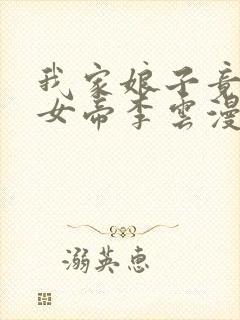 我家娘子竟
女帝李雲漫
溺英惠